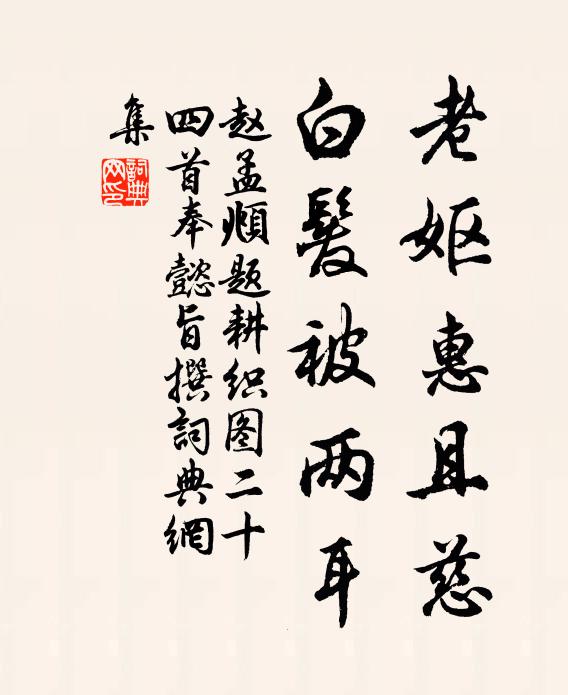 老妪惠且慈
白髮被两耳
赵孟頫题耕织图二十
四首奉懿旨撰詞典網
集
詞典网印